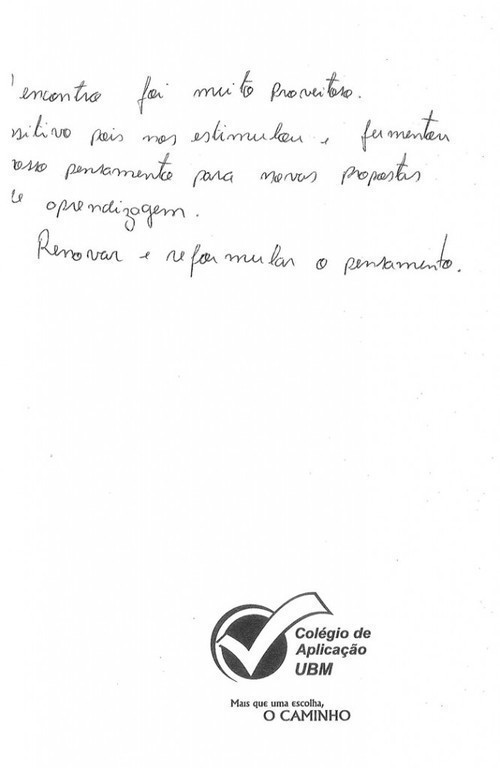 encontro foi muito proveitoso.
sitivo pois nos estimulou e fermentou
osso pensamento para novas propostas
de aprendizagem.
Renovar e reformular o pensamento.
Colégio de
Aplicação
UBM
Mais que uma escolha,
O CAMINHO